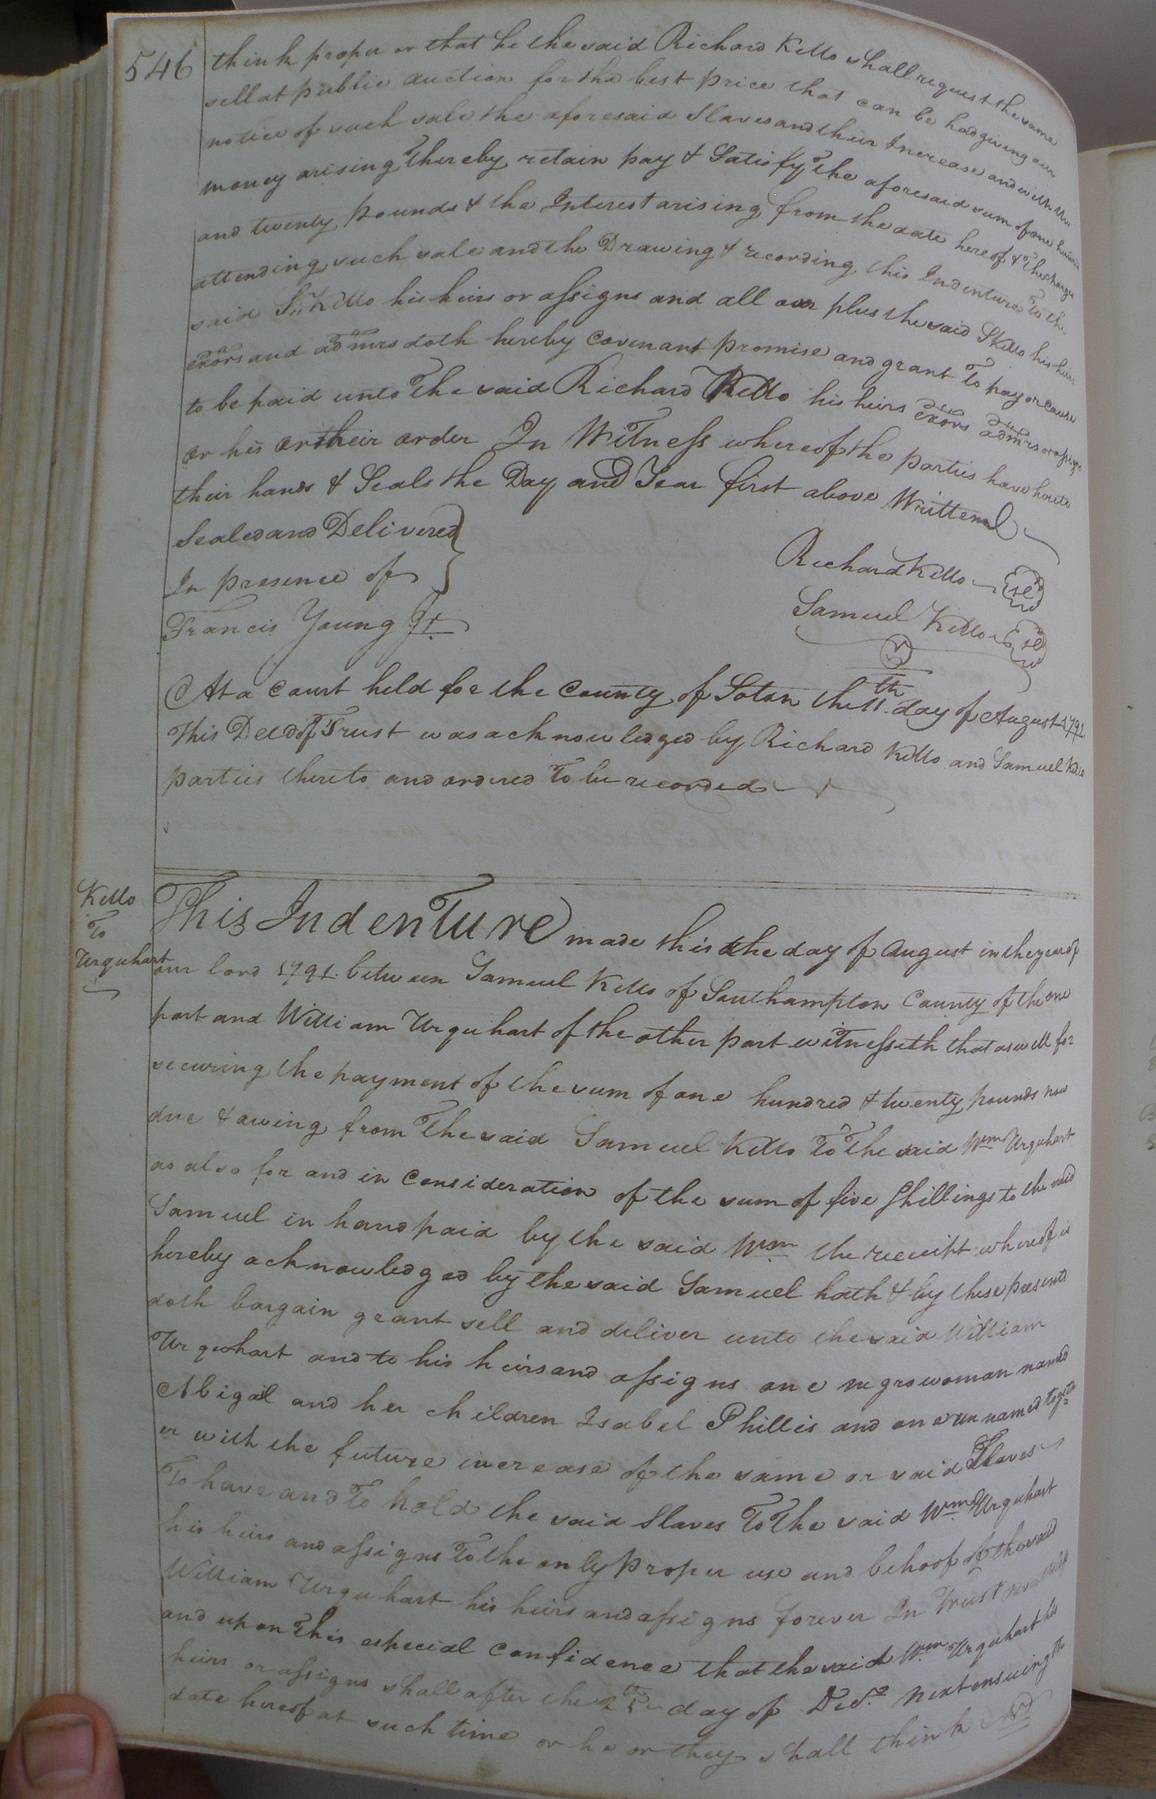 546
think proper or that he the said Richard Kello shall request the same
sell at public auction for the best price that can be had giving
notice of such sale the aforesaid Slaves and their Increase and with the
money arising Thereby retain pay & Satisfy The aforesaid sum of one
and twenty pounds & the Interest arising from the date hereof & The charges
attending such sale and the Drawing & recording this Indenture To the
said S. Kello his heirs or assigns and all over plus the said S Kello his heirs
exors and admrs doth hereby Covenant promise and grant To pay or cause
to be paid unto The said Richard Kello his heirs exors admrs or assigns
or his or their order In Witness whereof the parties have hereto
their hands & Seals the Day and Year first above Written
Sealed and Delivered
In presence of
Francis Young Jr.
Richard Kello Se
Samuel Kello Se
At a Court held for the County of Soton the 11th day of August 1791
This Deed of Trust was acknowledged by Richard Kello and Samuel Kello
parties thereto and ordered To be recorded
Kello
To
Urquhart
This Indenture made this the day of August in the year of
our lord 1791 between Samuel Kello of Southampton County of the one
part and William Urquhart of the other part witnesseth that as well for
securing the payment of the sum of one hundred & twenty pounds now
due & owing from The said Samuel Kello To The said Wm Urquhart
as also for and in Consideration of the sum of five Shillings to the said
Samuel in hand paid by the said Wm the receipt whereof is
hereby acknowledged by the said Samuel hath & by these presents
doth bargain grant sell and deliver unto the said William
Urquhart and to his heirs and assigns one negro woman named
Abigal and her children Isabel Phillis and one un named togeth
er with the future increase of the same or said Slaves
To have and To hold the said Slaves To The said Wm Urquhart
his heirs and assigns To the only proper use and behoof of the said
William Urquhart his heirs and assigns forever In Trust
and upon This especial Confidence that the said Wm Urquhart his
heirs or assigns shall after the 25th day of Decr next ensuing the
date hereof at such time or he or they shall think